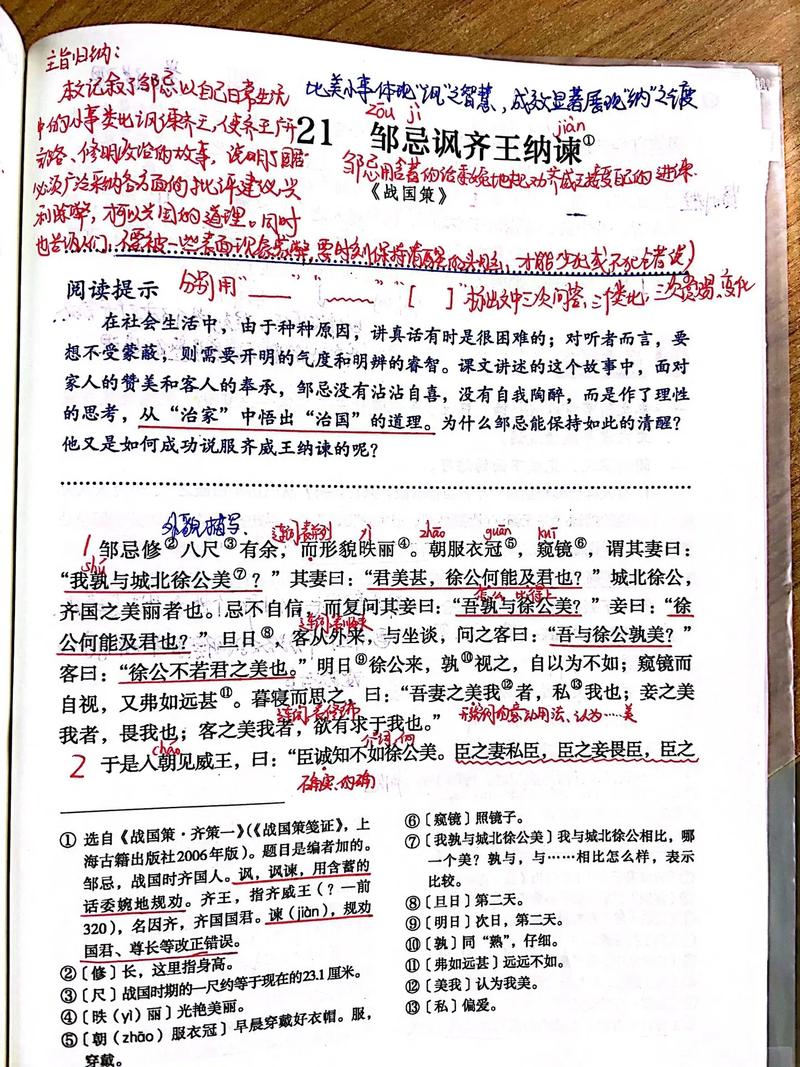 主旨归纳：
本文记叙了邹忌以自己日常生活
中的小事类比讽谏齐王，使齐王广开
言路、修明政治的故事，说明了国君
必须广泛采纳各方面的批评建议，兴
利除弊，才可以兴国的道理。同时
也告诉人们，不要被一些表面现象蒙蔽，要时刻保持清醒的头脑，才能少犯或不犯错误
比美小事体现“讽”之智慧，成效显著展现“纳”之度
zōu jì
jiàn
21 邹忌讽齐王纳谏①
邹忌用含蓄的话委婉地规劝齐威王接受自己的进谏
《战国策》
阅读提示
分别用“——”“﹏﹏”“[ ]”标出文中三次问答、三个类比、三次赏赐、变化
在社会生活中，由于种种原因，讲真话有时是很困难的；对听者而言，要
想不受蒙蔽，则需要开明的气度和明辨的睿智。课文讲述的这个故事中，面对
家人的赞美和客人的奉承，邹忌没有沾沾自喜，没有自我陶醉，而是作了理性
的思考，从“治家”中悟出“治国”的道理。为什么邹忌能保持如此的清醒？
他又是如何成功说服齐威王纳谏的呢？
外貌描写
连词 表并列
yì
zhāo
guān
kuī
1 邹忌修②八尺③有余，而形貌昳丽④。朝服衣冠⑤，窥镜⑥，谓其妻曰：
shú
“我孰与城北徐公美⑦？”其妻曰：“君美甚，徐公何能及君也？”城北徐公，
怎么 比得上
齐国之美丽者也。忌不自信，而复问其妾曰：“吾孰与徐公美？”妾曰：“徐
连词 表顺承
公何能及君也？”旦日⑧，客从外来，与坐谈，问之客曰：“吾与徐公孰美？”
客曰：“徐公不若君之美也。”明日⑨徐公来，孰⑩视之，自以为不如；窥镜而
自视，又弗如远甚⑪。暮寝而思之，曰：“吾妻之美我⑫者，私⑬我也；妾之美
连词 表修饰
形容词的意动用法、认为……美
我者，畏我也；客之美我者，欲有求于我也。”
cháo
介词，向
2 于是入朝见威王，曰：“臣诚知不如徐公美。臣之妻私臣，臣之妾畏臣，臣之
确实、的确
① 选自《战国策·齐策一》（《战国策笺证》，上
海古籍出版社2006年版）。题目是编者加的。
邹忌，战国时齐国人。讽，讽谏，用含蓄的
话委婉地规劝。齐王，指齐威王（？—前
320），名因齐，齐国国君。谏（jiàn），规劝
国君、尊长等改正错误。
②〔修〕长，这里指身高。
③〔尺〕战国时期的一尺约等于现在的23.1厘米。
④〔昳（yì）丽〕光艳美丽。
⑤〔朝（zhāo）服衣冠〕早晨穿戴好衣帽。服，
穿戴。
⑥〔窥镜〕照镜子。
⑦〔我孰与城北徐公美〕我与城北徐公相比，哪
一个美？孰与，与……相比怎么样，表示
比较。
⑧〔旦日〕第二天。
⑨〔明日〕次日，第二天。
⑩〔孰〕同“熟”，仔细。
⑪〔弗如远甚〕远远不如。
⑫〔美我〕认为我美。
⑬〔私〕偏爱。